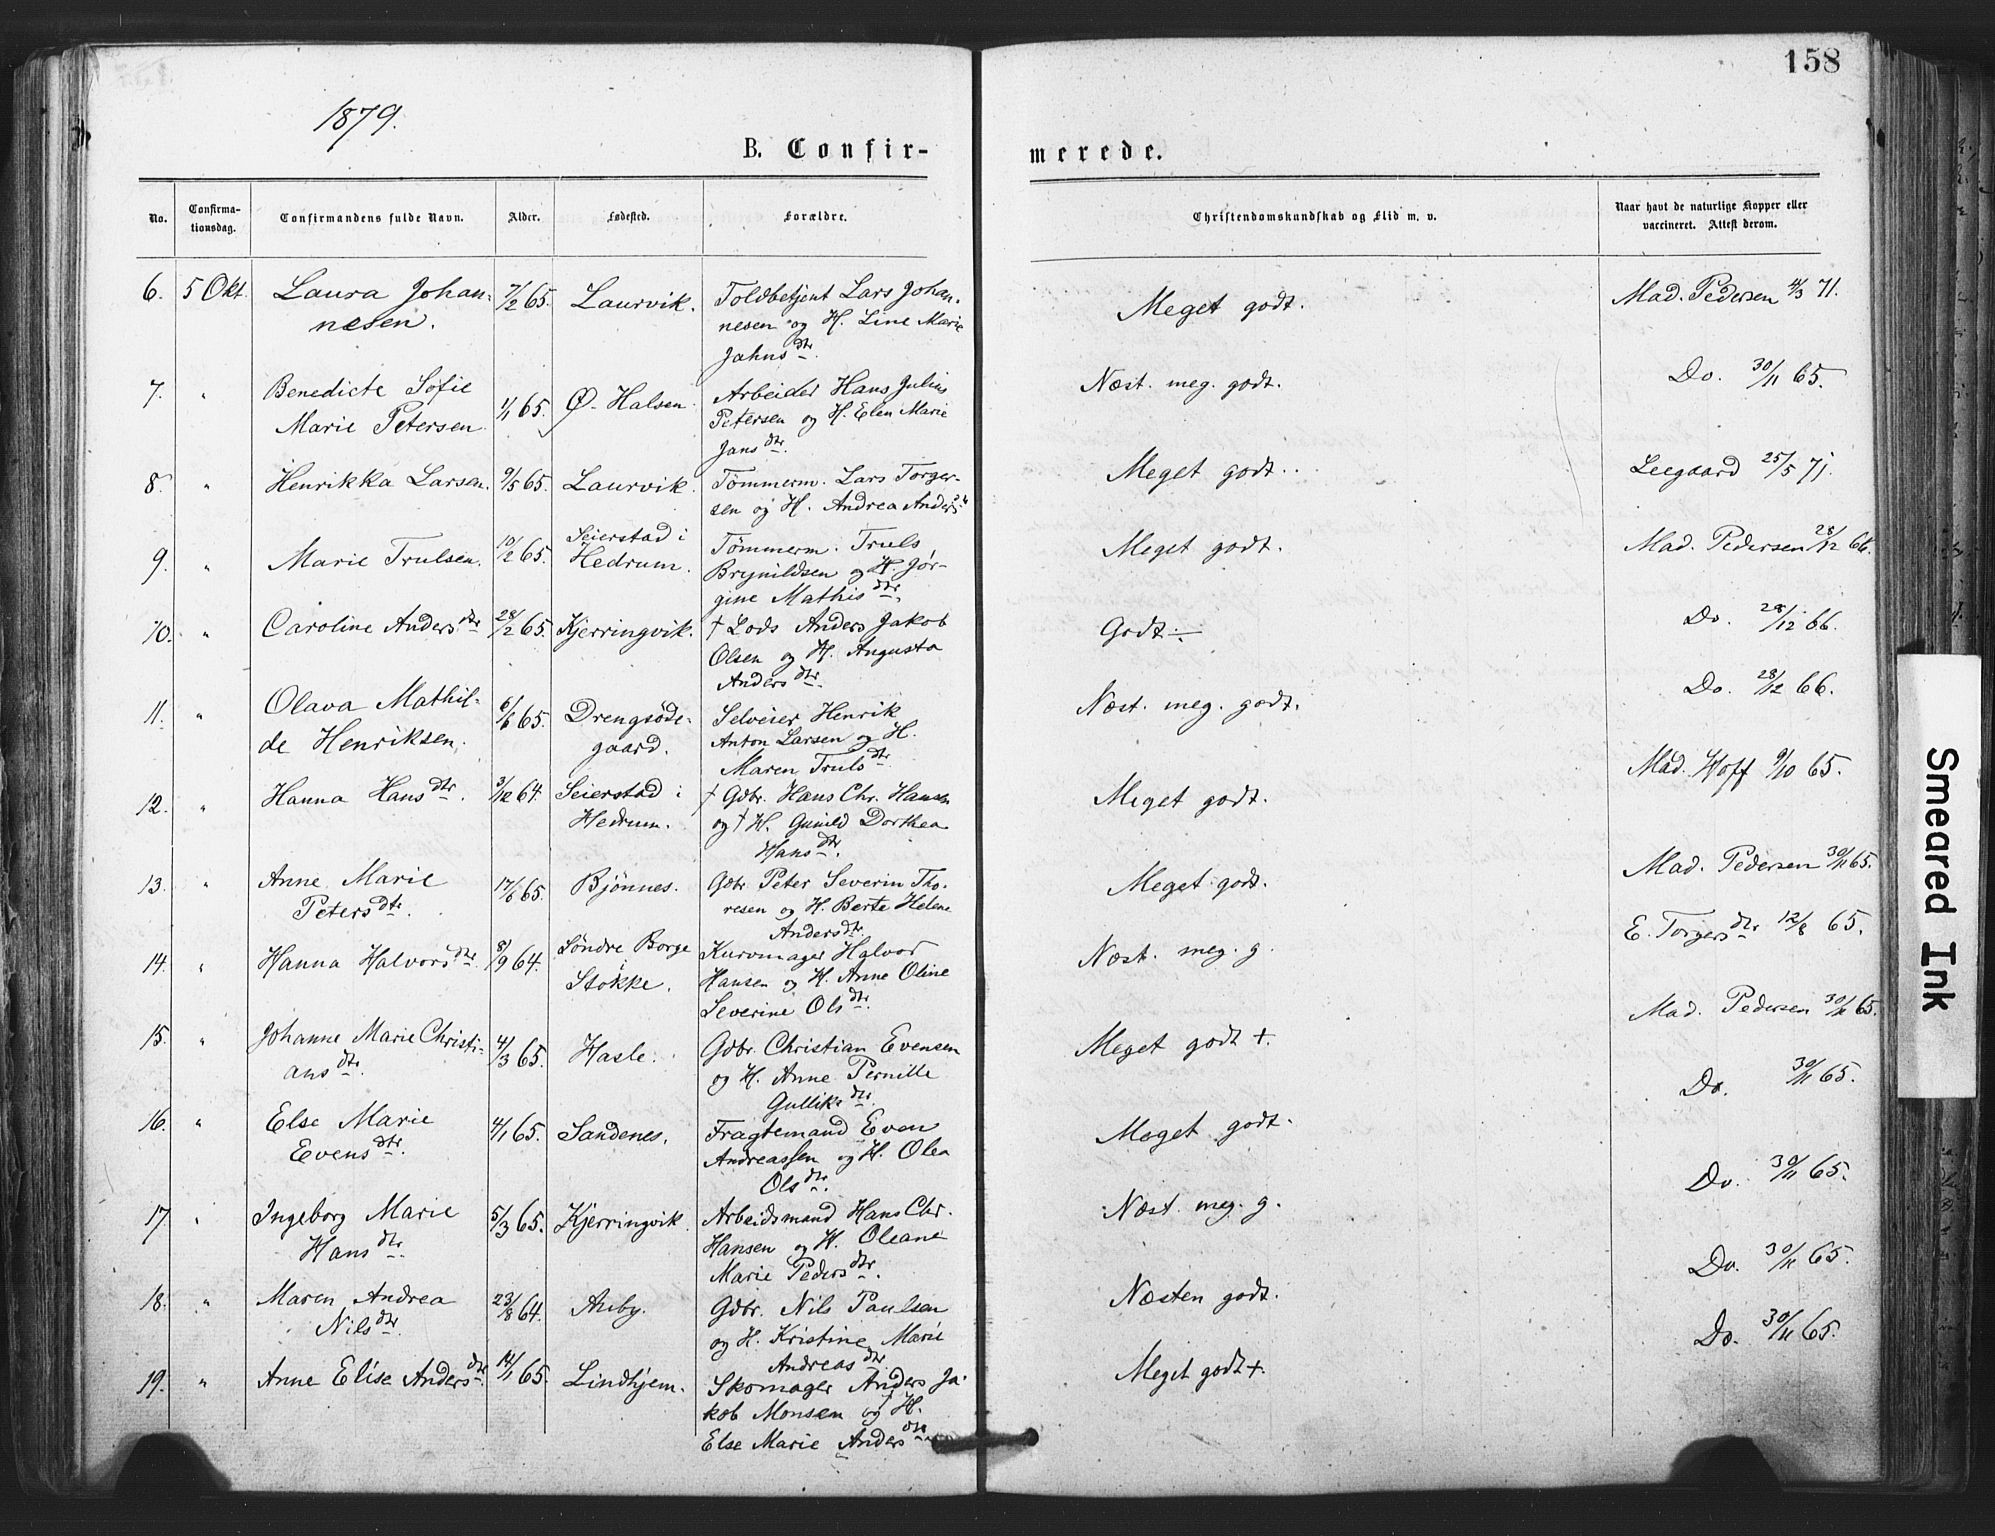 158
1879.
B. Confir-
merede.
No.
Confirma-
tionsdag.
Confirmandens fulde Navn.
Alder.
Fødested.
Forældre.
Christendomskundskab og Flid m. v.
Naar havt de naturlige Kopper eller
vaccineret. Attest derom.
6. 5 Okt. Laura Johan- 7/2 65. Laurvik. Toldbetjent Lars Johan- Meget godt. Mad. Pedersen 4/3 71.
nesen. nesen og H. Line Marie
Jahnsdtr.
7. " Benedicte Sofie Arbeider Hans Julius Næst. meg. godt. Do. 30/11 65.
Marie Petersen 1/1 65. Ø. Halsen. Petersen og H. Elen Marie
Jansdtr.
8. " Henrikka Larsen. 9/5 65. Laurvik. Tømmerm. Lars Torger- Meget godt. Leegaard 25/5 71.
sen og H. Andrea Anders
9. " Marie Trulsen. 10/2 65. Seierstad i Tømmerm. Truls Meget godt. Mad. Pedersen 28/12 66.
Hedrum. Brynildsen og H. Jør-
gine Mathisdtr.
10. " Caroline Andersdtr 28/2 65. Kjerringvik. † Lods Anders Jakob Godt ÷ Do. 28/12 66.
Olsen og H. Augusta
Andersdtr.
11. " Olava Mathil- 6/6 65. Drengsøde- Selveier Henrik Næst. meg. godt. Do. 28/12 66.
de Henriksen. gaard. Anton Larsen og H.
Maren Trulsdtr
12. " Hanna Hansdtr. 3/12 64. Seierstad i † Gdbr. Hans Chr. Hansen Meget godt. Mad. Hoff 9/10 65.
Hedrum. og † H. Gunild Dorthea
Hansdtr.
13. " Anne Marie 17/6 65. Bjønnes. Gdbr Peter Severin Tho- Meget godt. Mad. Pedersen 30/11 65.
Petersdtr. resen og H. Berte Helene
Andersdtr.
14. " Hanna Halvorsdtr 8/9 64. Søndre Borge Kurvmager Halvor Næst. meg. g. E. Torgersdtr 12/8 65.
i Stokke. Hansen og H. Anne Oline
Severine Olsdtr.
15. " Johanne Marie Christi- 4/3 65. Hasle. Gdbr. Christian Evensen Meget godt +. Mad. Pedersen 30/11 65.
ansdtr. og H. Anne Pernille
Gulliksdtr.
16. " Else Marie 4/1 65. Sandenes. Fragtemand Even Meget godt. Do. 30/11 65.
Evensdtr. Andreassen og H. Olea
Olsdtr.
17. " Ingeborg Marie 5/3 65. Kjerringvik. Arbeidsmand Hans Chr. Næst. meg. g. Do. 30/11 65.
Hansdtr. Hansen og H. Oleane
Marie Pedersdtr.
18. " Maren Andrea 23/8 64. Auby. Gdbr. Nils Paulsen Næsten godt. Do. 30/11 65.
Nilsdtr. og H. Kristine Marie
Andreasdtr.
19. " Anne Elise Andersdtr. 14/1 65. Lindhjem. Skomager Anders Ja- Meget godt +. Do. 30/11 65.
kob Monsen og † H.
Else Marie Andersdtr
Smeared Ink